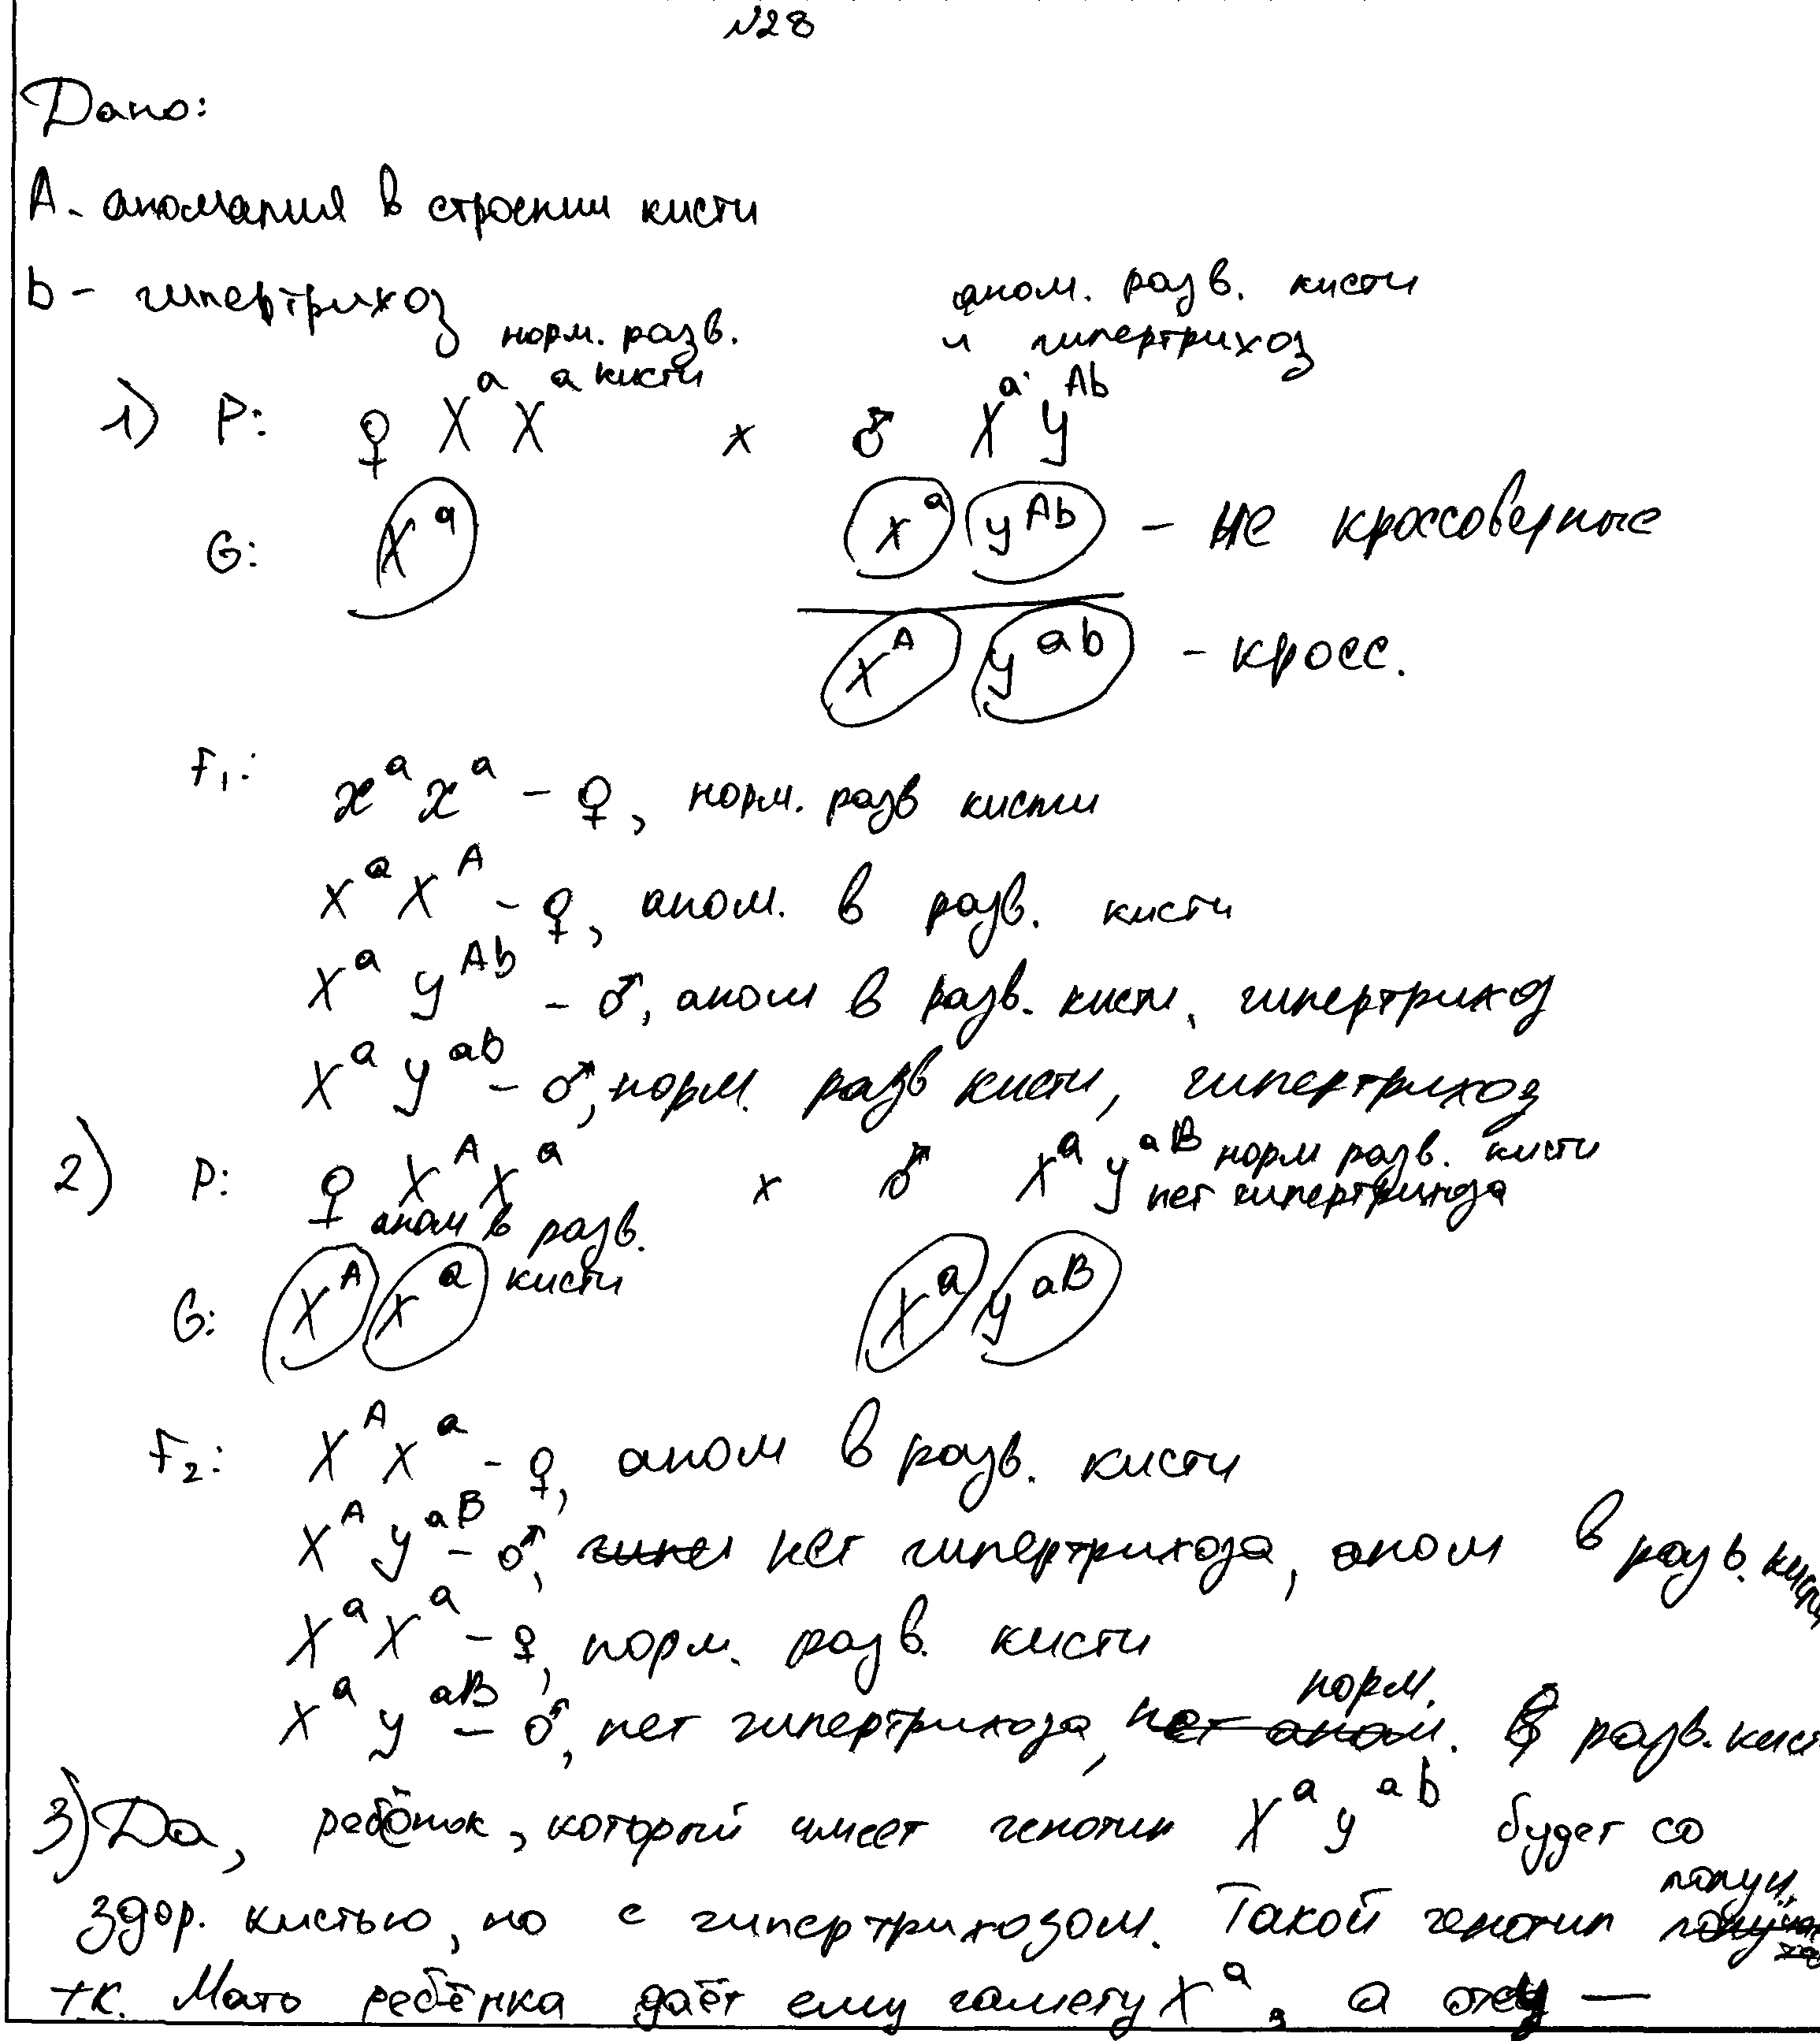 №28
Дано:
А - аномалия в строении кисти
b - гипертрихоз
норм. разв. кисти
аном. разв. кисти и гипертрихоз
1) P: ♀ XᵃXᵃ × ♂ XᵃYᴬᵇ
G: Xᵃ Xᵃ Yᴬᵇ - не кроссоверные
Xᴬ Yᵃᵇ - кросс.
F₁: XᵃXᵃ - ♀, норм. разв кисти
XᵃXᴬ - ♀, аном. в разв. кисти
XᵃYᴬᵇ - ♂, аном в разв. кисти, гипертрихоз
XᵃYᵃᵇ - ♂, норм. разв кисти, гипертрихоз
2) P: ♀ XᴬXᵃ × ♂ XᵃYᵃᴮ норм разв. кисти
аном в разв. кисти
нет гипертрихоза
G: Xᴬ Xᵃ Xᵃ Yᵃᴮ
F₂: XᴬXᵃ - ♀, аном в разв. кисти
XᴬYᵃᴮ - ♂, нет гипертрихоза, аном в разв. кисти
XᵃXᵃ - ♀, норм. разв. кисти
XᵃYᵃᴮ - ♂, нет гипертрихоза, норм. разв. кист
3) Да, ребёнок, который имеет генотип XᵃYᵃᵇ будет со
здор. кистью, но с гипертрихозом. Такой генотип получ.
т.к. Мать ребёнка даёт ему гамету Xᵃ, а отец —